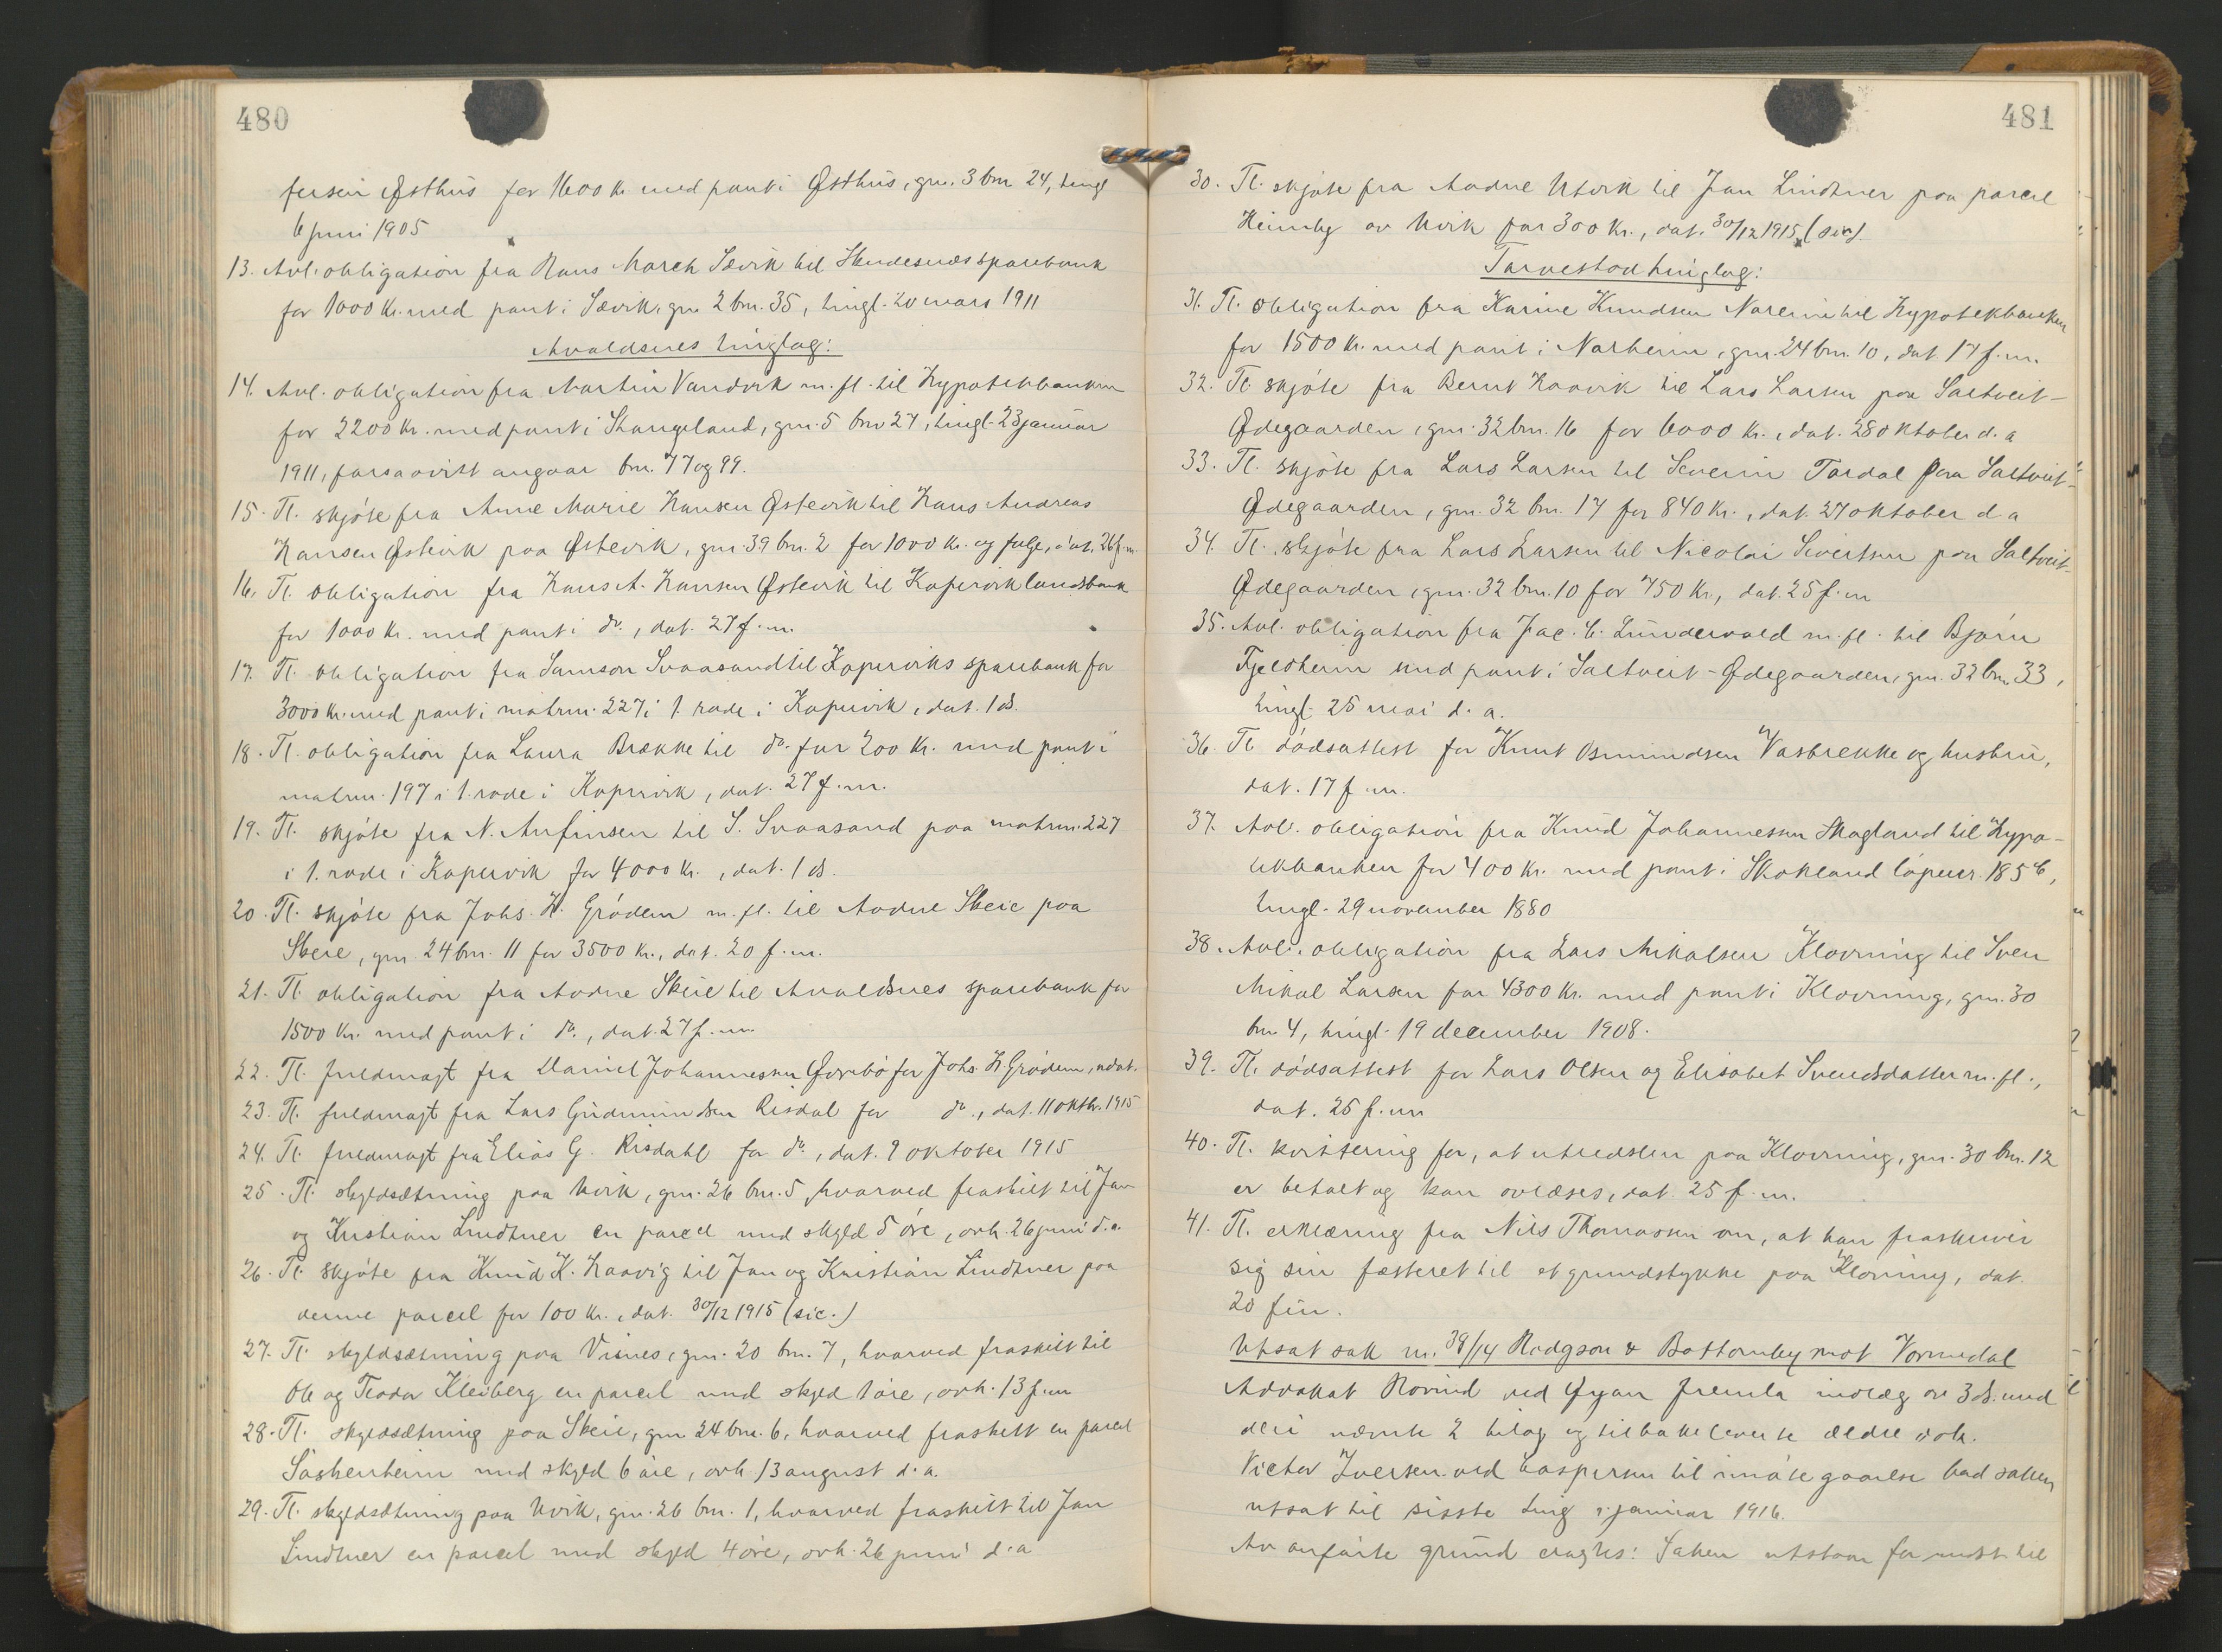 480
fersen Østhus for 1600 kr. med pant i Østhus, gnr. 3 bnr 24, tingl
6 juni 1905
13. Avl. obligation fra Rans March Sævik til Skudesnes sparebank
for 1000 kr. med pant i Sævik, gnr 2 bnr. 35, tingl. 20 mars 1911
Avaldsnes tinglag:
14. Avl. obligation fra Martin Vandvik m. fl. til Hypotekbanken
for 2200 kr. med pant i Stangeland, gnr. 5 bnr 27, tingl. 23 januar
1911, forsaavidt angaar bnr. 77 og 99.
15. Tl. skjøte fra Anne Marie Hansen Østevik til Hans Andreas
Hansen Østevik paa Østevik, gnr. 39 bnr. 2 for 1000 kr. og følge, dat. 26 f.m.
16. Tl. obligation fra Hans A. Hansen Østevik til Kopervik landsbank
for 1000 kr. med pant i do., dat. 27 f. m.
17. Tl. obligation fra Samson Svaasand til Koperviks sparebank for
3000 kr. med pant i matrnr. 227 i 1. rode i Kopervik, dat. 1 ds.
18. Tl. obligation fra Laura Brekke til do. for 200 kr. med pant i
matrnr. 197 i 1. rode i Kopervik, dat. 27 f. m.
19. Tl. skjøte fra N. Anfinsen til S. Svaasand paa matrnr. 227
i 1. rode i Kopervik for 4000 kr., dat. 1 ds.
20. Tl. skjøte fra Johs. H. Grødem m. fl. til Aadne Skeie paa
Skeie, gnr. 24 bnr. 11 for 3500 kr., dat. 20 f. m.
21. Tl. obligation fra Aadne Skeie til Avaldsnes sparebank for
1500 kr. med pant i do., dat. 27 f. m.
22. Tl. fuldmagt fra Daniel Johannesen Øvrebø for Johs. H. Grødem, udat.
23. Tl. fuldmagt fra Lars Gudmundsen Risdal for do., dat. 11 oktbr. 1915
24. Tl. fuldmagt fra Elias G. Risdahl for do., dat. 9 oktober 1915
25. Tl. skyldsætning paa Utvik, gnr. 26 bnr. 5, hvorved fraskilt til Jan
og Kristian Lindtner en parcel med skyld 5 øre, avh. 26 juni d. a.
26. Tl. skjøte fra Knud K. Haavig til Jan og Kristian Lindtner paa
denne parcel for 100 kr., dat. 30/12 1915 (sic.)
27. Tl. skyldsætning paa Visnes, gnr. 20 bnr. 7, hvorved fraskilt til
Ole og Teodor Kleiberg en parcel med skyld 1 øre, avh. 13 f. m
28. Tl. skyldsætning paa Skeie, gnr 24 bnr. 6, hvorved fraskilt en parcel
med skyld 6 øre, avh 13 august d. a.
29. Tl. skyldsætning paa Utvik, gnr. 26 bnr. 1, hvorved fraskilt til Jan
Lindtner en parcel med skyld 4 øre, avh. 26 juni d. a
481
30. Tl. skjøte fra Aadne Utvik til Jan Lindtner paa parcel
av Utvik for 300 kr., dat. 30/12 1915 (sic).
Torvestad tinglag:
31. Tl. obligation fra Karine Knudsen Noreim til Hypotekbanken
for 1500 kr. med pant i Norheim, gnr. 24 bnr. 10, dat 17 f. m.
32. Tl. skjøte fra Bernt Haavik til Lars Larsen paa Saltveit-
Ødegaarden, gnr. 32 bnr. 16 for 6000 kr., dat. 28 oktober d. a
33. Tl. skjøte fra Lars Larsen til Severin Tordal paa Saltveit-
Ødegaarden, gnr. 32 bnr. 17 for 840 kr., dat. 27 oktober d a
34. Tl. skjøte fra Lars Larsen til Nicolai Sivertsen paa Saltveit-
Ødegaarden, gnr. 32 bnr. 10 for 750 kr., dat. 25 f. m
35. Avl. obligation fra Jac. C. Lundevald m. fl. til Bjørn
Fjeldheim med pant i Saltveit-Ødegaarden, gnr. 32 bnr. 33,
tingl. 25 mai d. a.
36. Tl dødsattest for Knut Osmundsen Vasbrekke og hustru,
dat. 17 f. m.
37. Avl. obligation fra Knud Johannessen Skogland til Hypo-
tekbanken for 400 kr. med pant i Skokland løpenr. 185 c,
tingl. 29 november 1880
38. Avl. obligation fra Lars Mikalsen Klovning til Sven
Mikal Larsen for 4300 kr. med pant i Klovning, gnr. 30
bnr 4, tingl. 19 december 1908.
39. Tl. dødsattest for Lars Olsen og Elisabet Svendsdatter m. fl.,
dat. 25 f. m
40. Tl. kvittering for, at utredslen paa Klovning, gnr. 30 bnr. 12
er betalt og kan avlæses, dat. 25 f. m.
41. Tl. erklæring fra Nils Thomassen om, at han fraskriver
sig sin festeret til et grundstykke paa Klovning, dat.
20 f. m.
Utsat sak nr. 39/14 Hodgson & Bottomley mot Vormedal
Advokat Rovind ved Øyan fremla indlæg av 3 ds. med
deri nævnte 2 bilag og tilbakeleverte ældre dok.
Victor Iversen ved Caspersen til imøtegaaelse bad saken
utsat til sisste ting i januar 1916.
Av anførte grund eragtes: Saken utstaar for mdt. til